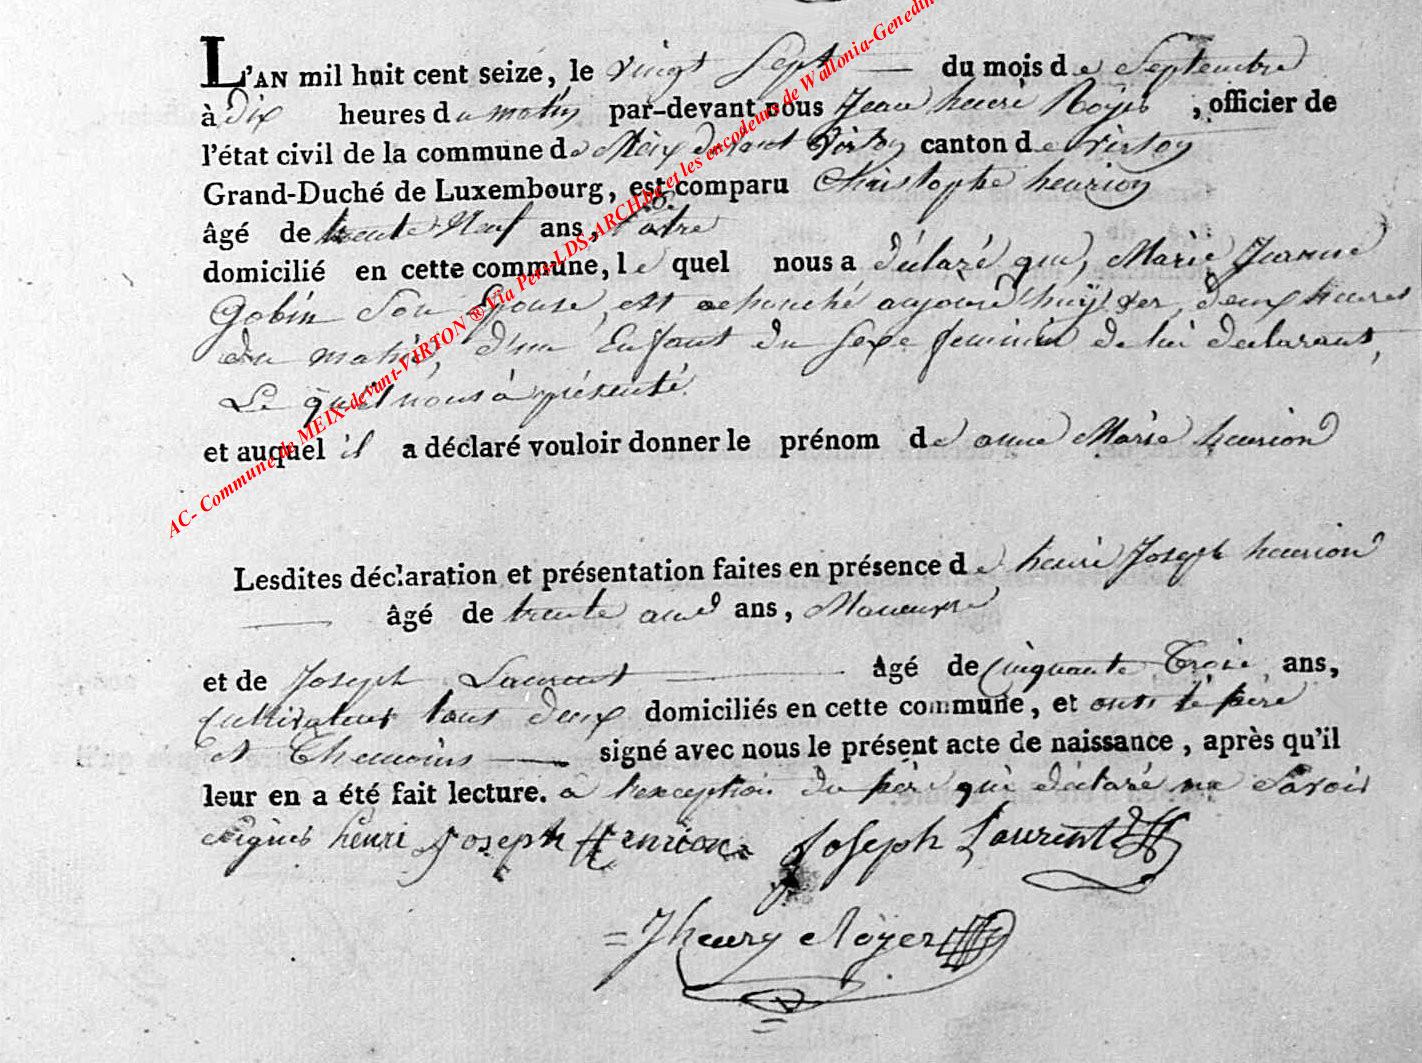 L'AN mil huit cent seize, le vingt Sept du mois de Septembre
à Dix heures du matin par-devant nous Jean henri Royer, officier de
l'état civil de la commune de Meix devant Virton canton de virton
Grand-Duché de Luxembourg, est comparu Christophe henrion
âgé de trente Neuf ans, Patre
domicilié en cette commune, le quel nous a déclaré que, Marie Jeanne
Gobin Son Epouse, est acouché aujourd'huÿ deux heures
du matin, d'un Enfant du Sexe feminin de lui déclarant,
Le quel nous à présenté.
et auquel il a déclaré vouloir donner le prénom de anne Marie henrion
Lesdites déclaration et présentation faites en présence de henri Joseph henrion
âgé de trente ans, Maneuvre
et de Joseph Laurent âgé de Cinquante Trois ans,
Cultivateur tous deux domiciliés en cette commune, et le père
et Themoins signé avec nous le présent acte de naissance, après qu'il
leur en a été fait lecture. a l'exception du père qui à déclaré ne Savoir
Signer henri Joseph Henrion Joseph Laurent
Jhenry Róÿer
AC- Commune de MEIX-devant-VIRTON ® Via Pers-LDS-ARCH.be et les encodeurs de Wallonia-Genedin